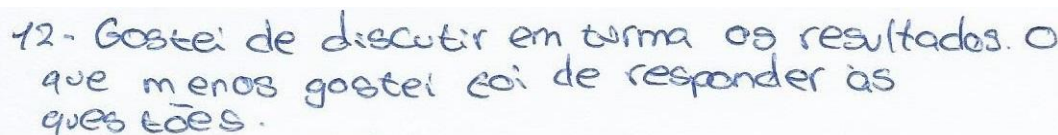 12- Gostei de discutir em turma os resultados. O
que menos gostei foi de responder às
questões.